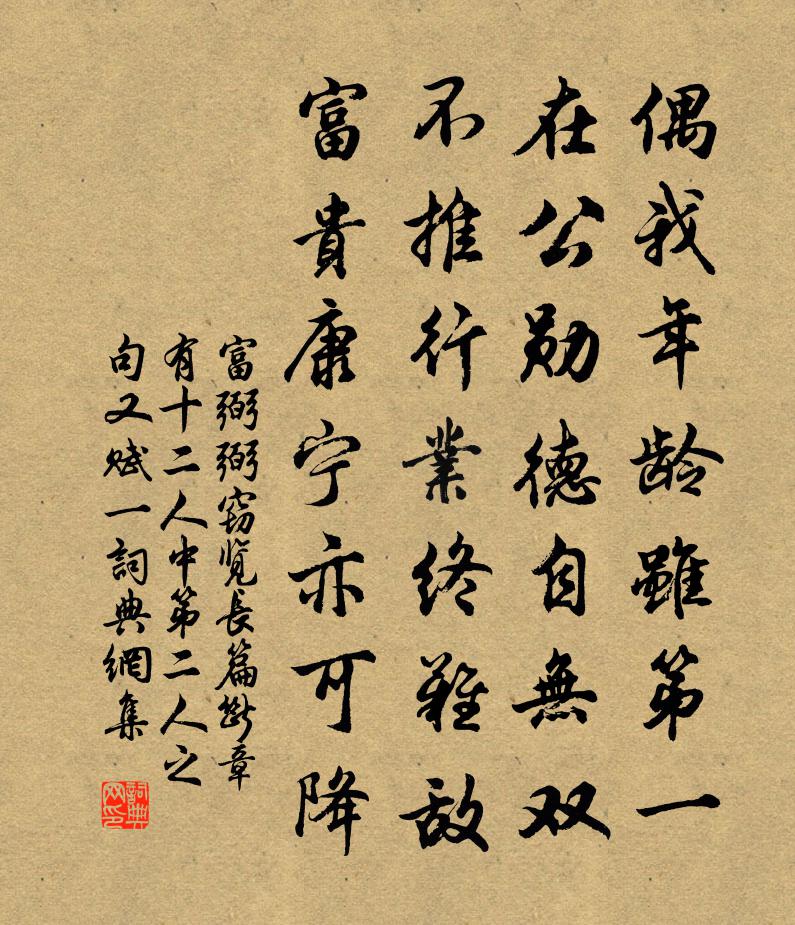 偶我年龄雖第一
在公勋德自無双
不推行業终難敌
富貴康宁亦可降
富弼弼窃览長篇断章
有十二人中第二人之
句又赋一詞典網集
詞典网印